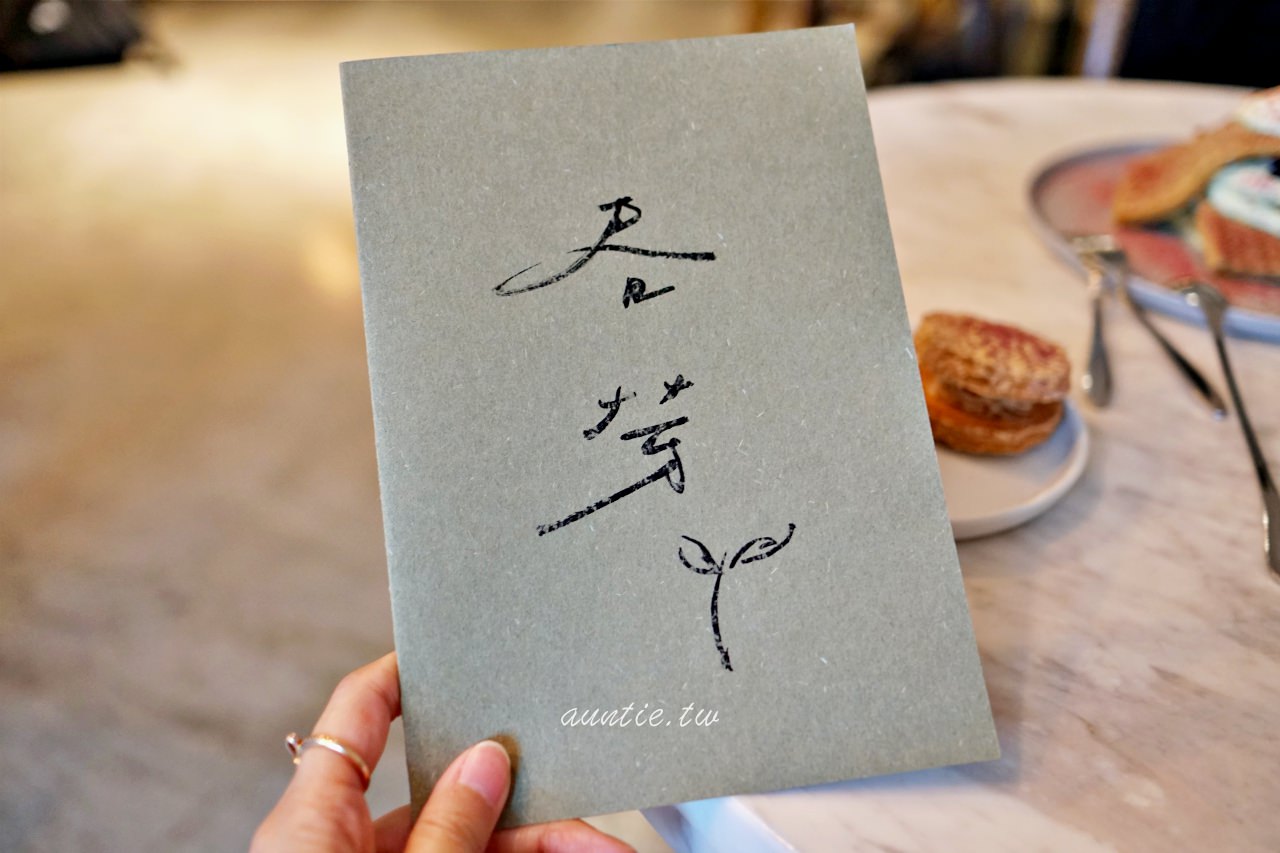 吞
芽
auntie.tw